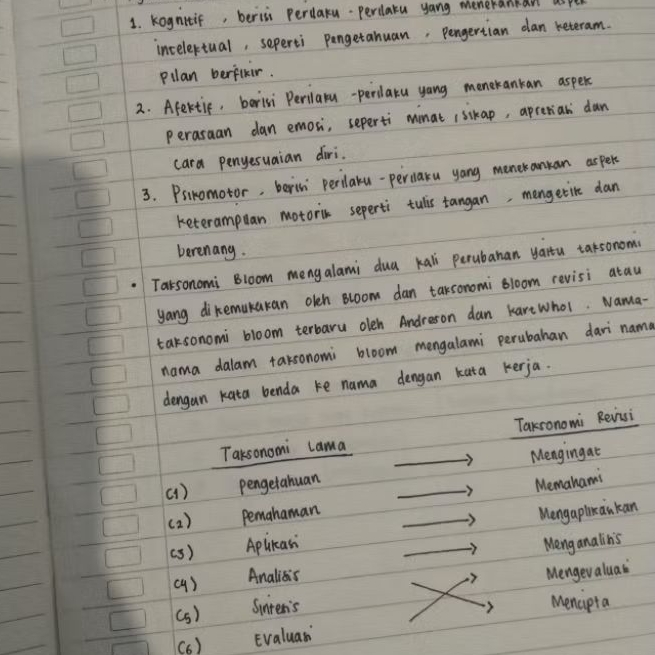 1. Kognitif, berisi Perilaku - perilaku yang menekankan aspek
intelektual, seperti Pengetahuan, Pengertian dan keteram-
pilan berfikir.
2. Afektif, berisi Perilaku - perilaku yang menekankan aspek
perasaan dan emosi, seperti minat, sikap, apresiasi dan
cara penyesuaian diri.
3. Psikomotor, berisi perilaku - perilaku yang menekankan aspek
keterampilan motorik seperti tulis tangan, mengetik dan
berenang.
• Taksonomi Bloom mengalami dua kali perubahan yaitu taksonomi
yang dikemukakan oleh Bloom dan taksonomi Bloom revisi atau
taksonomi bloom terbaru oleh Andreson dan kartWhol. Nama-
nama dalam taksonomi bloom mengalami perubahan dari nama
dengan kata benda ke nama dengan kata kerja.
Taksonomi Lama Taksonomi Revisi
C1) Pengetahuan → Mengingat
C2) Pemahaman → Memahami
C3) Aplikasi → Mengaplikasikan
C4) Analisis → Menganalisis
C5) Sintesis Mengevaluasi
C6) Evaluasi Mencipta